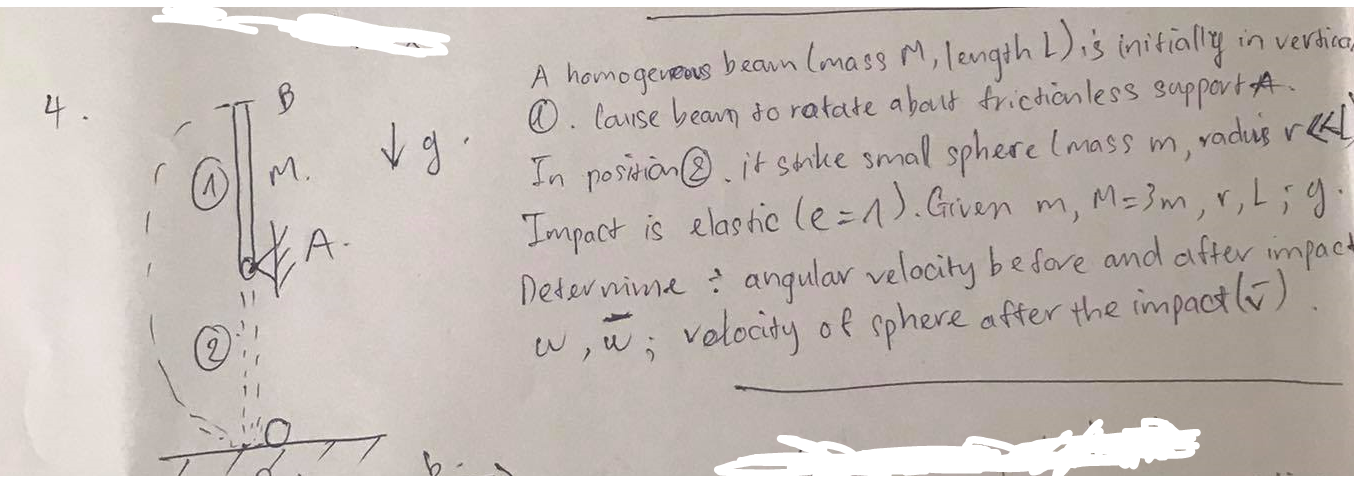 4.
B
①
M.
↓ g.
A.
②
A homogeneous beam (mass M, length L) is initially in vertica
①. Cause beam to rotate about frictionless support A.
In position ②. it strike smal sphere (mass m, radius r<<L)
Impact is elastic (e=1). Given m, M=3m, r, L; g.
Determine : angular velocity before and after impact
w, w̄; velocity of sphere after the impact (v̄).
b.